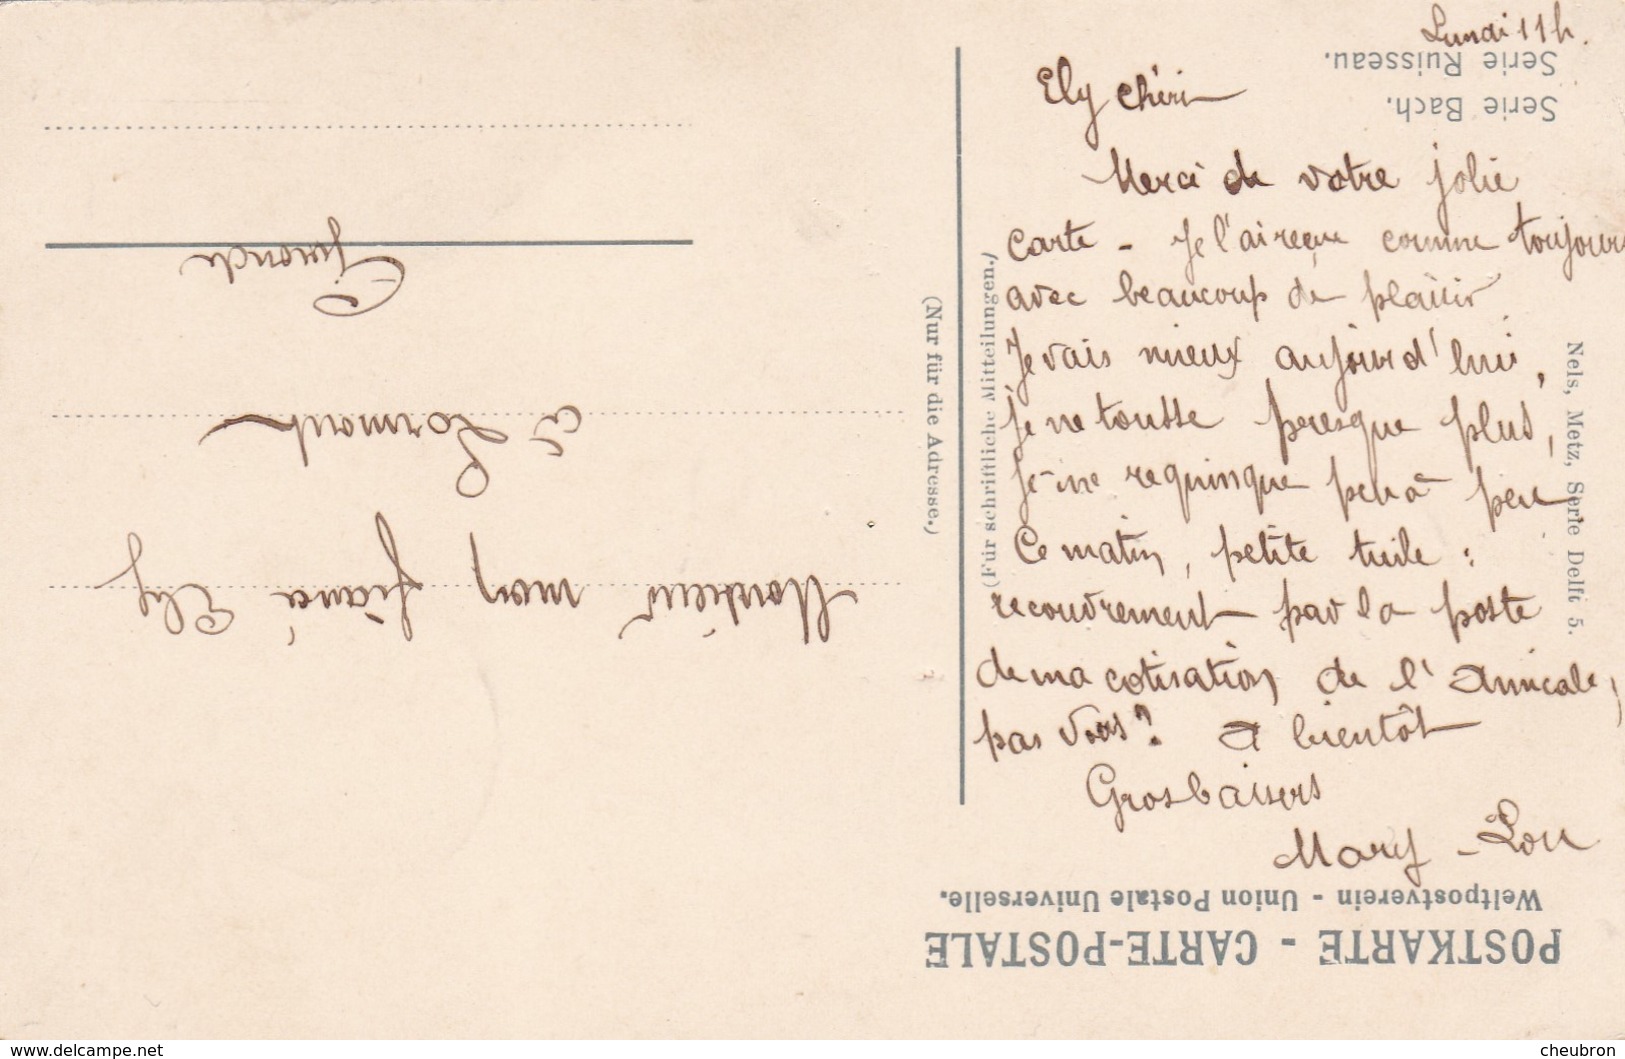 Lundi 11h.
Serie Ruisseau.
Serie Bach.
Ely chéri
Merci de votre jolie
carte - Je l'ai reçue comme toujours
avec beaucoup de plaisir
Je vais mieux aujourd'hui,
je ne tousse peresque plus,
je me requinque peu à peu
Ce matin, petite tuile :
recouvrement par la poste
de ma cotisation de l'Amicale,
pas vous? A bientôt
Gros baisers
Mary-Lou
Nels, Metz, Serie Delft 5.
(Für schriftliche Mitteilungen.)
(Nur für die Adresse.)
POSTKARTE - CARTE-POSTALE
Weltpostverein - Union Postale Universelle.
Monsieur mon fiancé Ely
à Lormont
Gironde
www.delcampe.net
cheubron